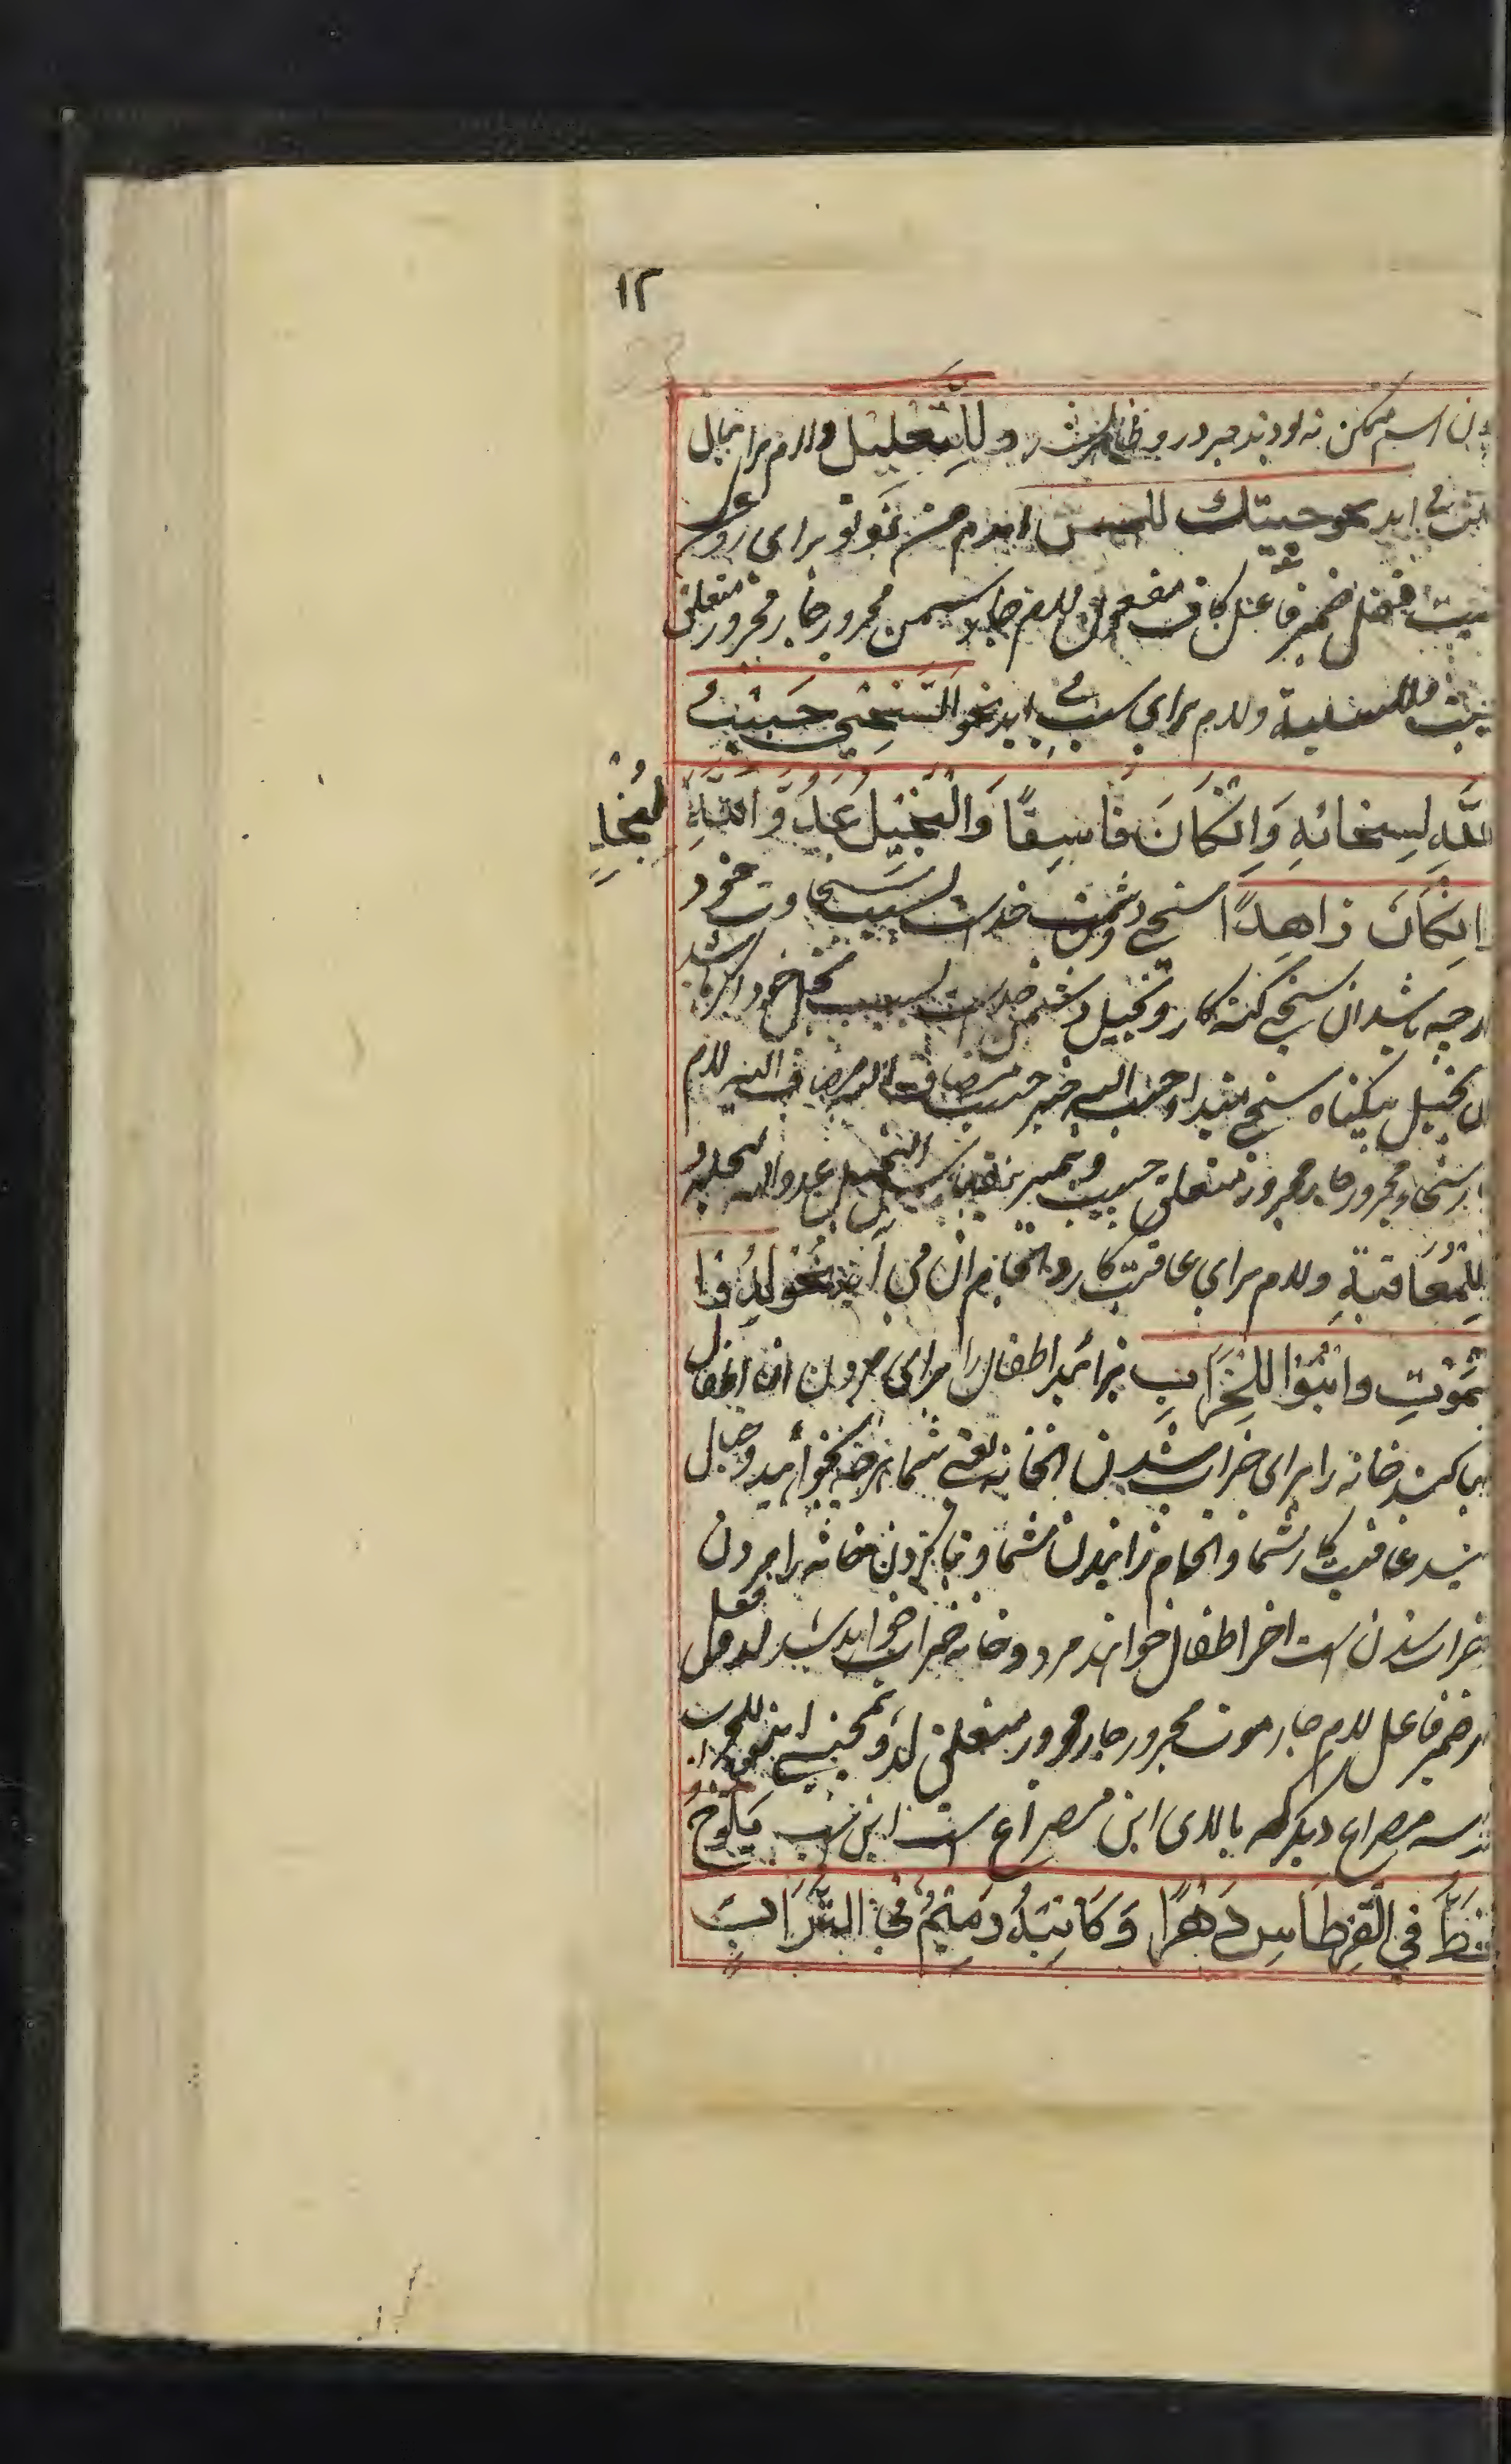 ١٢
اسم ممکن نه بودند جر در و ظاهر شد وَلِلتَّعْلِيْلِ و لام برای بیان
اید نحو جيتك للسمن امدم من نزد تو برای روغن
فعل ضمیر فاعل کاف مفعول لام جار سمن مجرور جار مجرور متعلق
وللسببية و لام برای سبب می اید نحو اَلسَّخِيُّ حَبِيْبُ
اللّٰهِ لِسِخَائِهِ وَاِنْكَانَ فَاسِقًا وَالْبَخِيْلُ عَدُوُّ اللّٰهِ
لِبُخْلِهِ
اِنْكَانَ زَاهِدًا سخی خداست بسبب سخاوت خود
اگرچه باشد ان سخی گنه کار و بخیل دشمن خداست بسبب بخل خود اگرچه باشد
ان بخیل بیگناه سخی مبتدا و حبیب الله خبر حبیب مضاف الله مضاف الیه لام
جار سخا مجرور جار مجرور متعلق حبیب و همین البخیل عدو الله لبخله و
لِلْمُعَاقَبَةِ و لام برای عاقبت کار و انجام ان می آید نحو لِدُوْا
لِلْمَوْتِ وَابْنُوْا لِلْخَرَابِ بزائید اطفال را برای مردن ان اطفال
بنا کنید خانه را برای خراب شدن انخانه یعنی شما هرچه بخواهید و خیال
کنید عاقبت کار شما و انجام زائیدن شما و بنا کردن خانه را مردن
خراب شدن است اخر اطفال خواهند مرد و خانه خراب خواهد شد لدوا فعل
و ضمیر فاعل لام جار موت مجرور جار مجرور متعلق لدوا و همچنین ابنوا للخراب
مصراع دیگر که بالای این مصراع است این است يَلُوْحُ
الْخَطُّ فِي الْقِرْطَاسِ دَهْرًا وَكَاتِبُهُ رَمِيْمٌ فِي التُّرَابِ